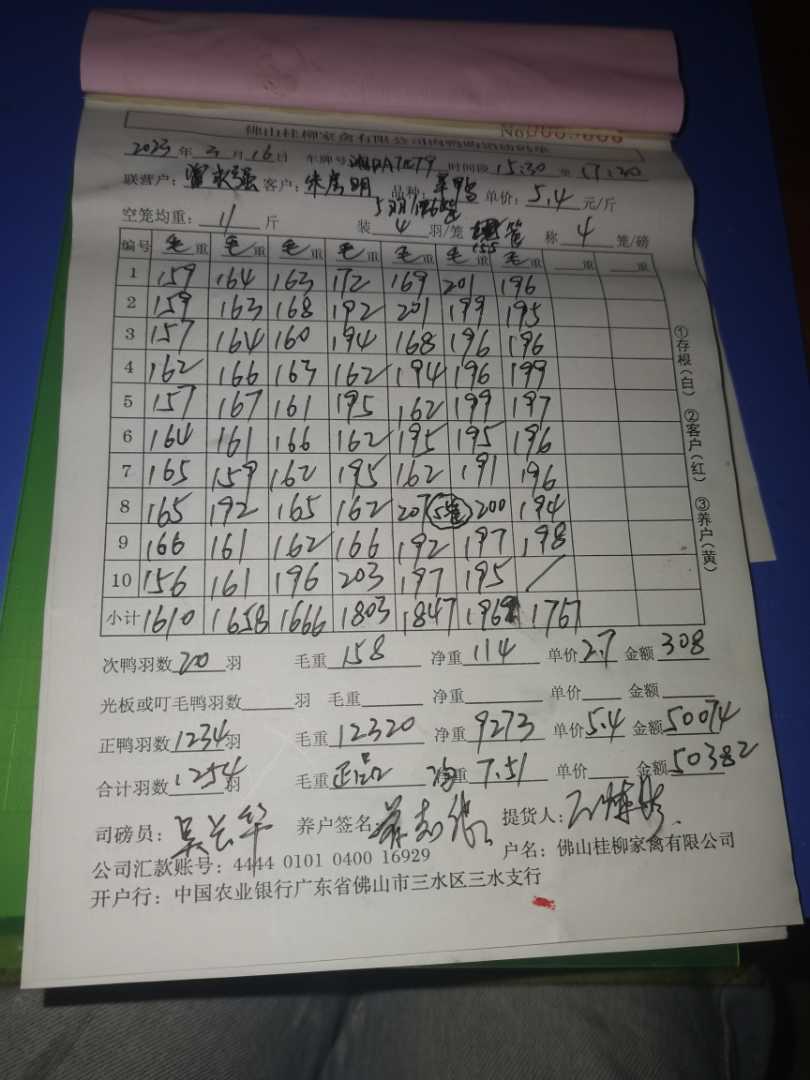 佛山桂柳家禽有限公司肉鸭购销结算单
2023 年 2 月 16 日 车牌号 时间段 15:30 至 17:30
联营户： 客户： 品种： 单价：5.4 元/斤
空笼均重：11 斤 装 4 羽/笼 155 笼 称 4 笼/磅
编号 毛重 毛重 毛重 毛重 毛重 毛重 毛重 重 重
1 159 164 163 172 169 201 196
2 159 163 168 192 201 199 195
3 157 164 160 194 168 196 196
4 162 166 163 162 194 196 199
5 157 167 161 195 162 199 197
6 164 161 166 162 195 195 196
7 165 159 162 195 162 191 196
8 165 192 165 162 207 200 194
9 166 161 162 166 192 197 198
10 156 161 196 203 197 195 /
小计 1610 1658 1666 1803 1847 1969 1767
①存根(白) ②客户(红) ③养户(黄)
次鸭羽数 20 羽 毛重 158 净重 114 单价 2.7 金额 308
光板或叮毛鸭羽数 羽 毛重 净重 单价 金额
正鸭羽数 1234 羽 毛重 12320 净重 9273 单价 5.4 金额 50074
合计羽数 1254 羽 毛重 正品 均重 7.51 单价 金额 50382
司磅员： 养户签名： 提货人：
公司汇款账号：4444 0101 0400 16929 户名：佛山桂柳家禽有限公司
开户行：中国农业银行广东省佛山市三水区三水支行